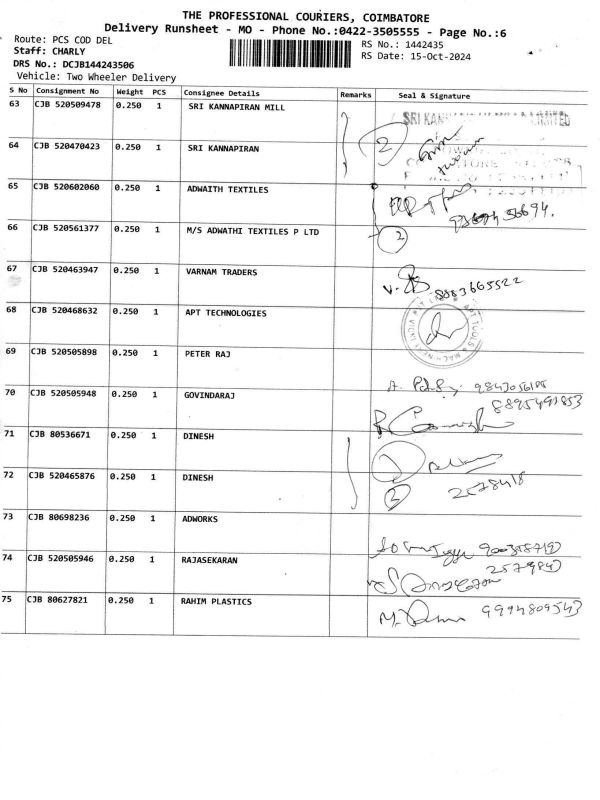 THE PROFESSIONAL COURIERS, COIMBATORE
Delivery Runsheet - MO - Phone No.:0422-3505555 - Page No.:6
Route: PCS COD DEL
RS No.: 1442435
Staff: CHARLY
RS Date: 15-Oct-2024
DRS No.: DCJB144243506
Vehicle: Two Wheeler Delivery
S No Consignment No Weight PCS Consignee Details Remarks Seal & Signature
63 CJB 520509478 0.250 1 SRI KANNAPIRAN MILL
64 CJB 520470423 0.250 1 SRI KANNAPIRAN
2
65 CJB 520602060 0.250 1 ADWAITH TEXTILES
66 CJB 520561377 0.250 1 M/S ADWATHI TEXTILES P LTD
2
67 CJB 520463947 0.250 1 VARNAM TRADERS
68 CJB 520468632 0.250 1 APT TECHNOLOGIES
69 CJB 520505898 0.250 1 PETER RAJ
70 CJB 520505948 0.250 1 GOVINDARAJ
71 CJB 80536671 0.250 1 DINESH
72 CJB 520465876 0.250 1 DINESH
2
2578418
73 CJB 80698236 0.250 1 ADWORKS
74 CJB 520505946 0.250 1 RAJASEKARAN
75 CJB 80627821 0.250 1 RAHIM PLASTICS
9994809543